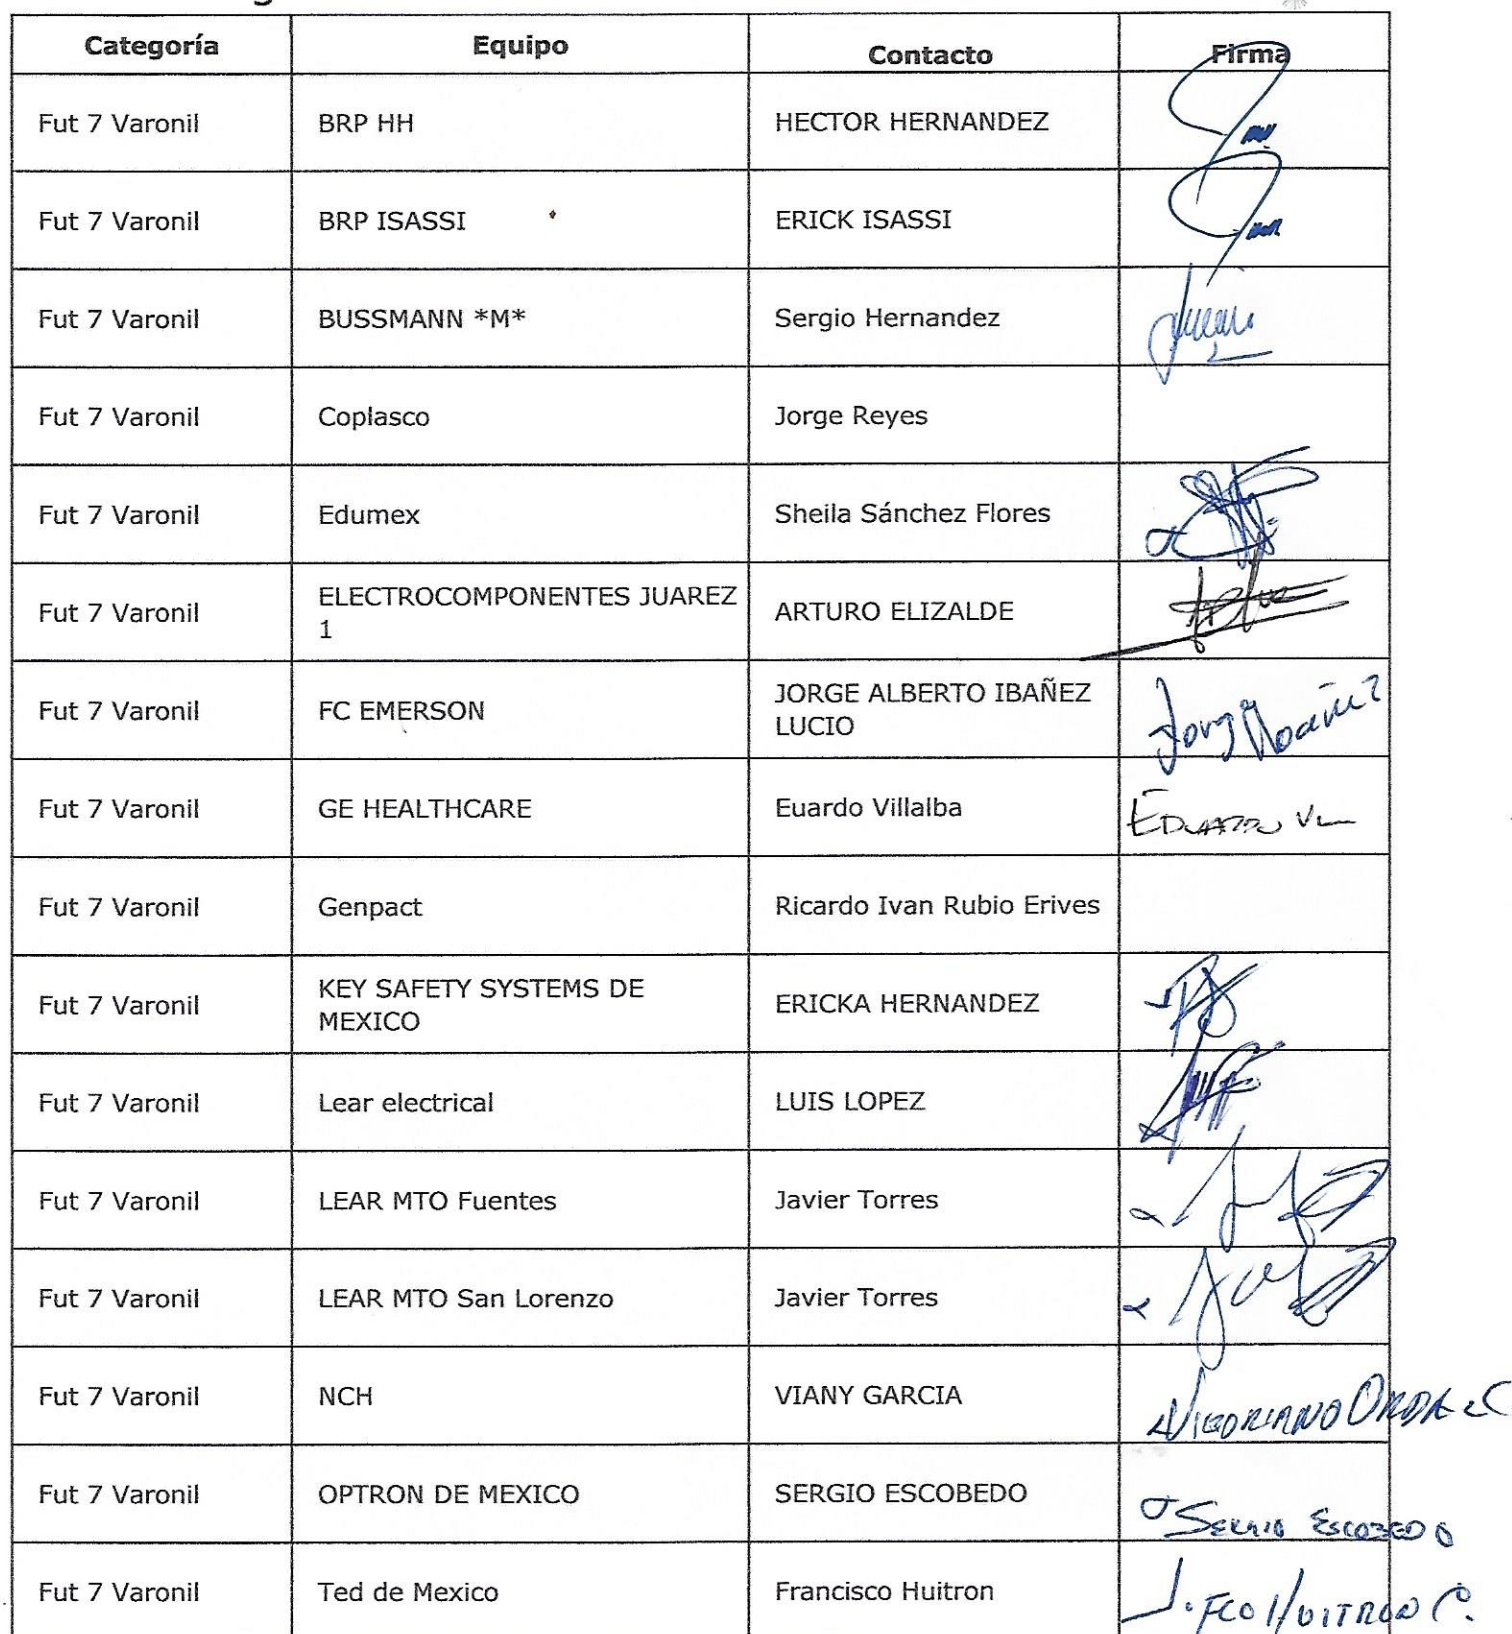 Categoría Equipo Contacto Firma
Fut 7 Varonil BRP HH HECTOR HERNANDEZ
Fut 7 Varonil BRP ISASSI ERICK ISASSI
Fut 7 Varonil BUSSMANN *M* Sergio Hernandez
Fut 7 Varonil Coplasco Jorge Reyes
Fut 7 Varonil Edumex Sheila Sánchez Flores
Fut 7 Varonil ELECTROCOMPONENTES JUAREZ
1 ARTURO ELIZALDE
Fut 7 Varonil FC EMERSON JORGE ALBERTO IBAÑEZ
LUCIO Jorge Ibañez
Fut 7 Varonil GE HEALTHCARE Euardo Villalba EDUARDO V
Fut 7 Varonil Genpact Ricardo Ivan Rubio Erives
Fut 7 Varonil KEY SAFETY SYSTEMS DE
MEXICO ERICKA HERNANDEZ
Fut 7 Varonil Lear electrical LUIS LOPEZ
Fut 7 Varonil LEAR MTO Fuentes Javier Torres
Fut 7 Varonil LEAR MTO San Lorenzo Javier Torres
Fut 7 Varonil NCH VIANY GARCIA
Fut 7 Varonil OPTRON DE MEXICO SERGIO ESCOBEDO SERGIO ESCOBEDO
Fut 7 Varonil Ted de Mexico Francisco Huitron J. FCO HUITRON C.